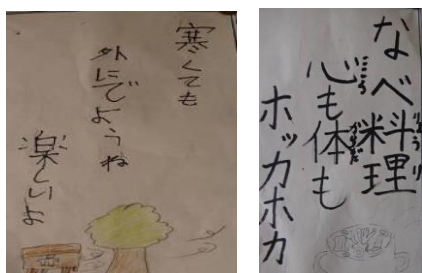 寒くても
外にでようね
楽しいよ
なべ料理
心も体も
ホッカホカ